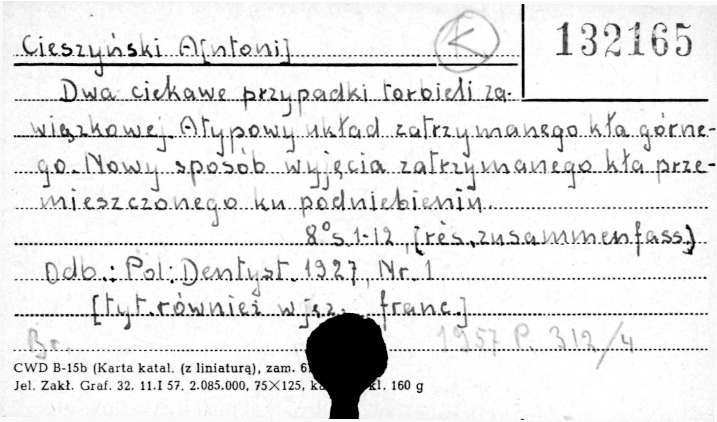 Cieszyński A[ntoni]
K
132165
Dwa ciekawe przypadki torbieli za-
wiązkowej. Atypowy układ zatrzymanego kła górne-
go. Nowy sposób wyjęcia zatrzymanego kła prze-
mieszczonego ku podniebieniu.
8° s. 1-12, [rés., zusammenfass.]
Odb.: Pol. Dentyst. 1927, Nr. 1
[tyt. również w jęz. franc.]
Br. 1957 P. 312/4
CWD B-15b (Karta katal. (z liniaturą), zam.
Jel. Zakł. Graf. 32. 11.I 57. 2.085.000, 75×125, kl. 160 g